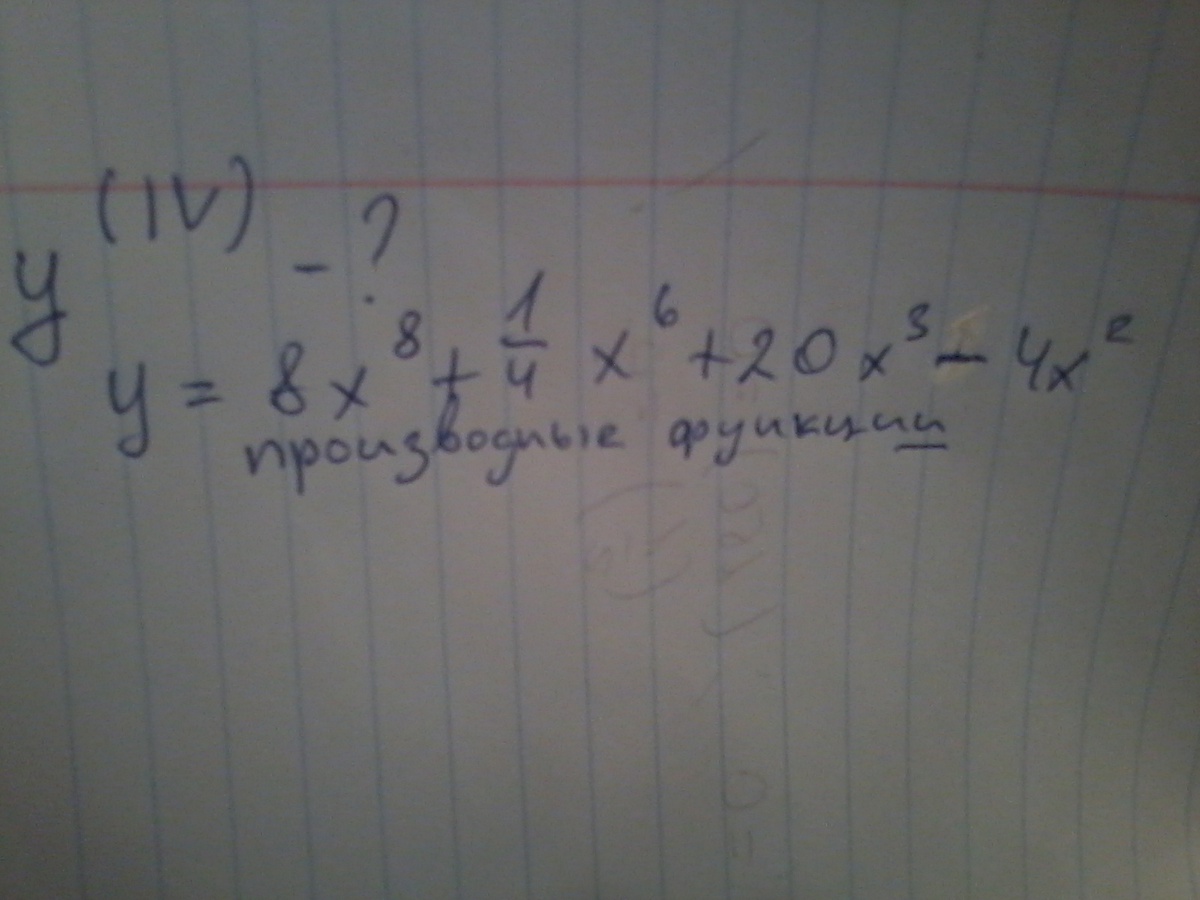 y^(IV) - ?
y = 8x^8 + 1/4 x^6 + 20x^3 - 4x^2
производные функции